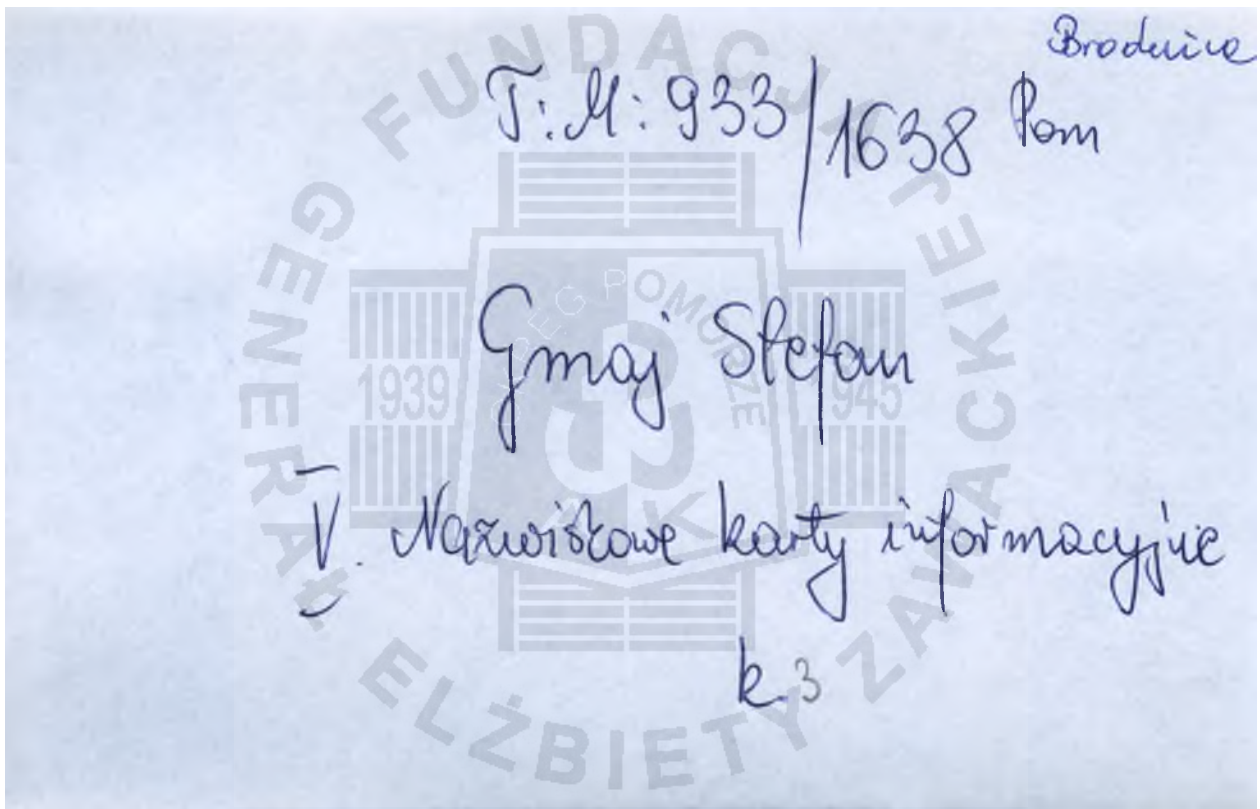 Brodnica
T:M: 933/1638 Pom
Gmaj Stefan
V. Nazwiskowe karty informacyjne
k.3
FUNDACJA GENERAŁ ELŻBIETY ZAWACKIEJ
1939 1945
POMORZE
AK